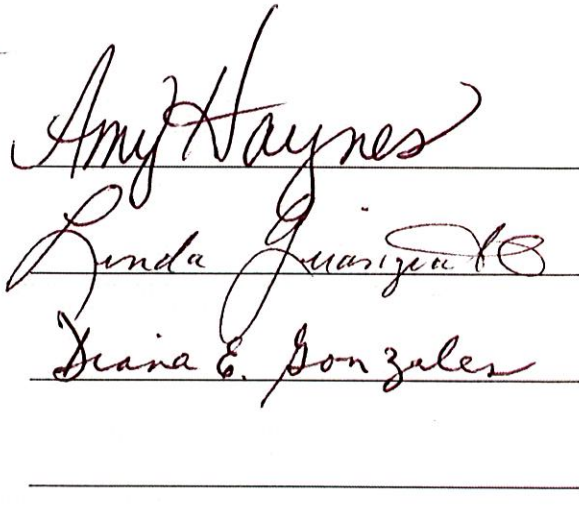 Amy Haynes
Linda
Diana E. Gonzales